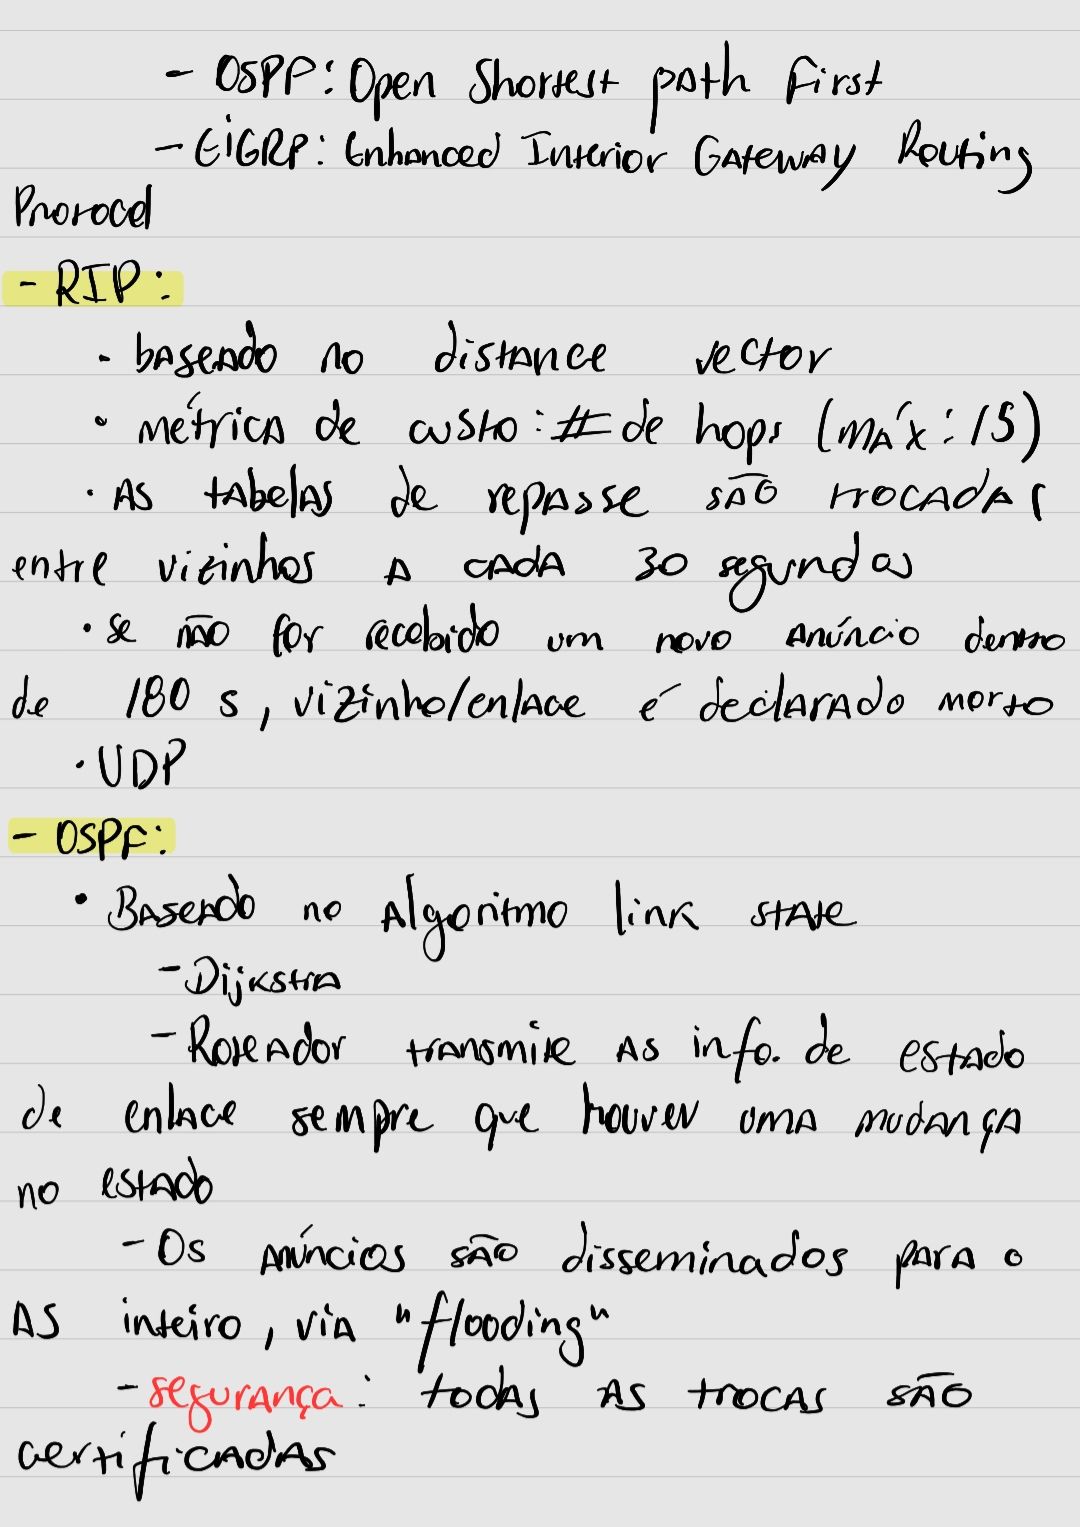 - OSPF: Open Shortest path First
- EIGRP: Enhanced Interior Gateway Routing
Protocol
- RIP:
• baseado no distance vector
• métrica de custo: # de hops (máx: 15)
• As tabelas de repasse são trocadas
entre vizinhos a cada 30 segundos
• se não for recebido um novo anúncio dentro
de 180 s, vizinho/enlace é declarado morto
• UDP
- OSPF:
• Baseado no Algoritmo link state
- Dijkstra
- Roteador transmite as info. de estado
de enlace sempre que houver uma mudança
no estado
- Os anúncios são disseminados para o
AS inteiro, via "flooding"
- segurança: todas as trocas são
certificadas